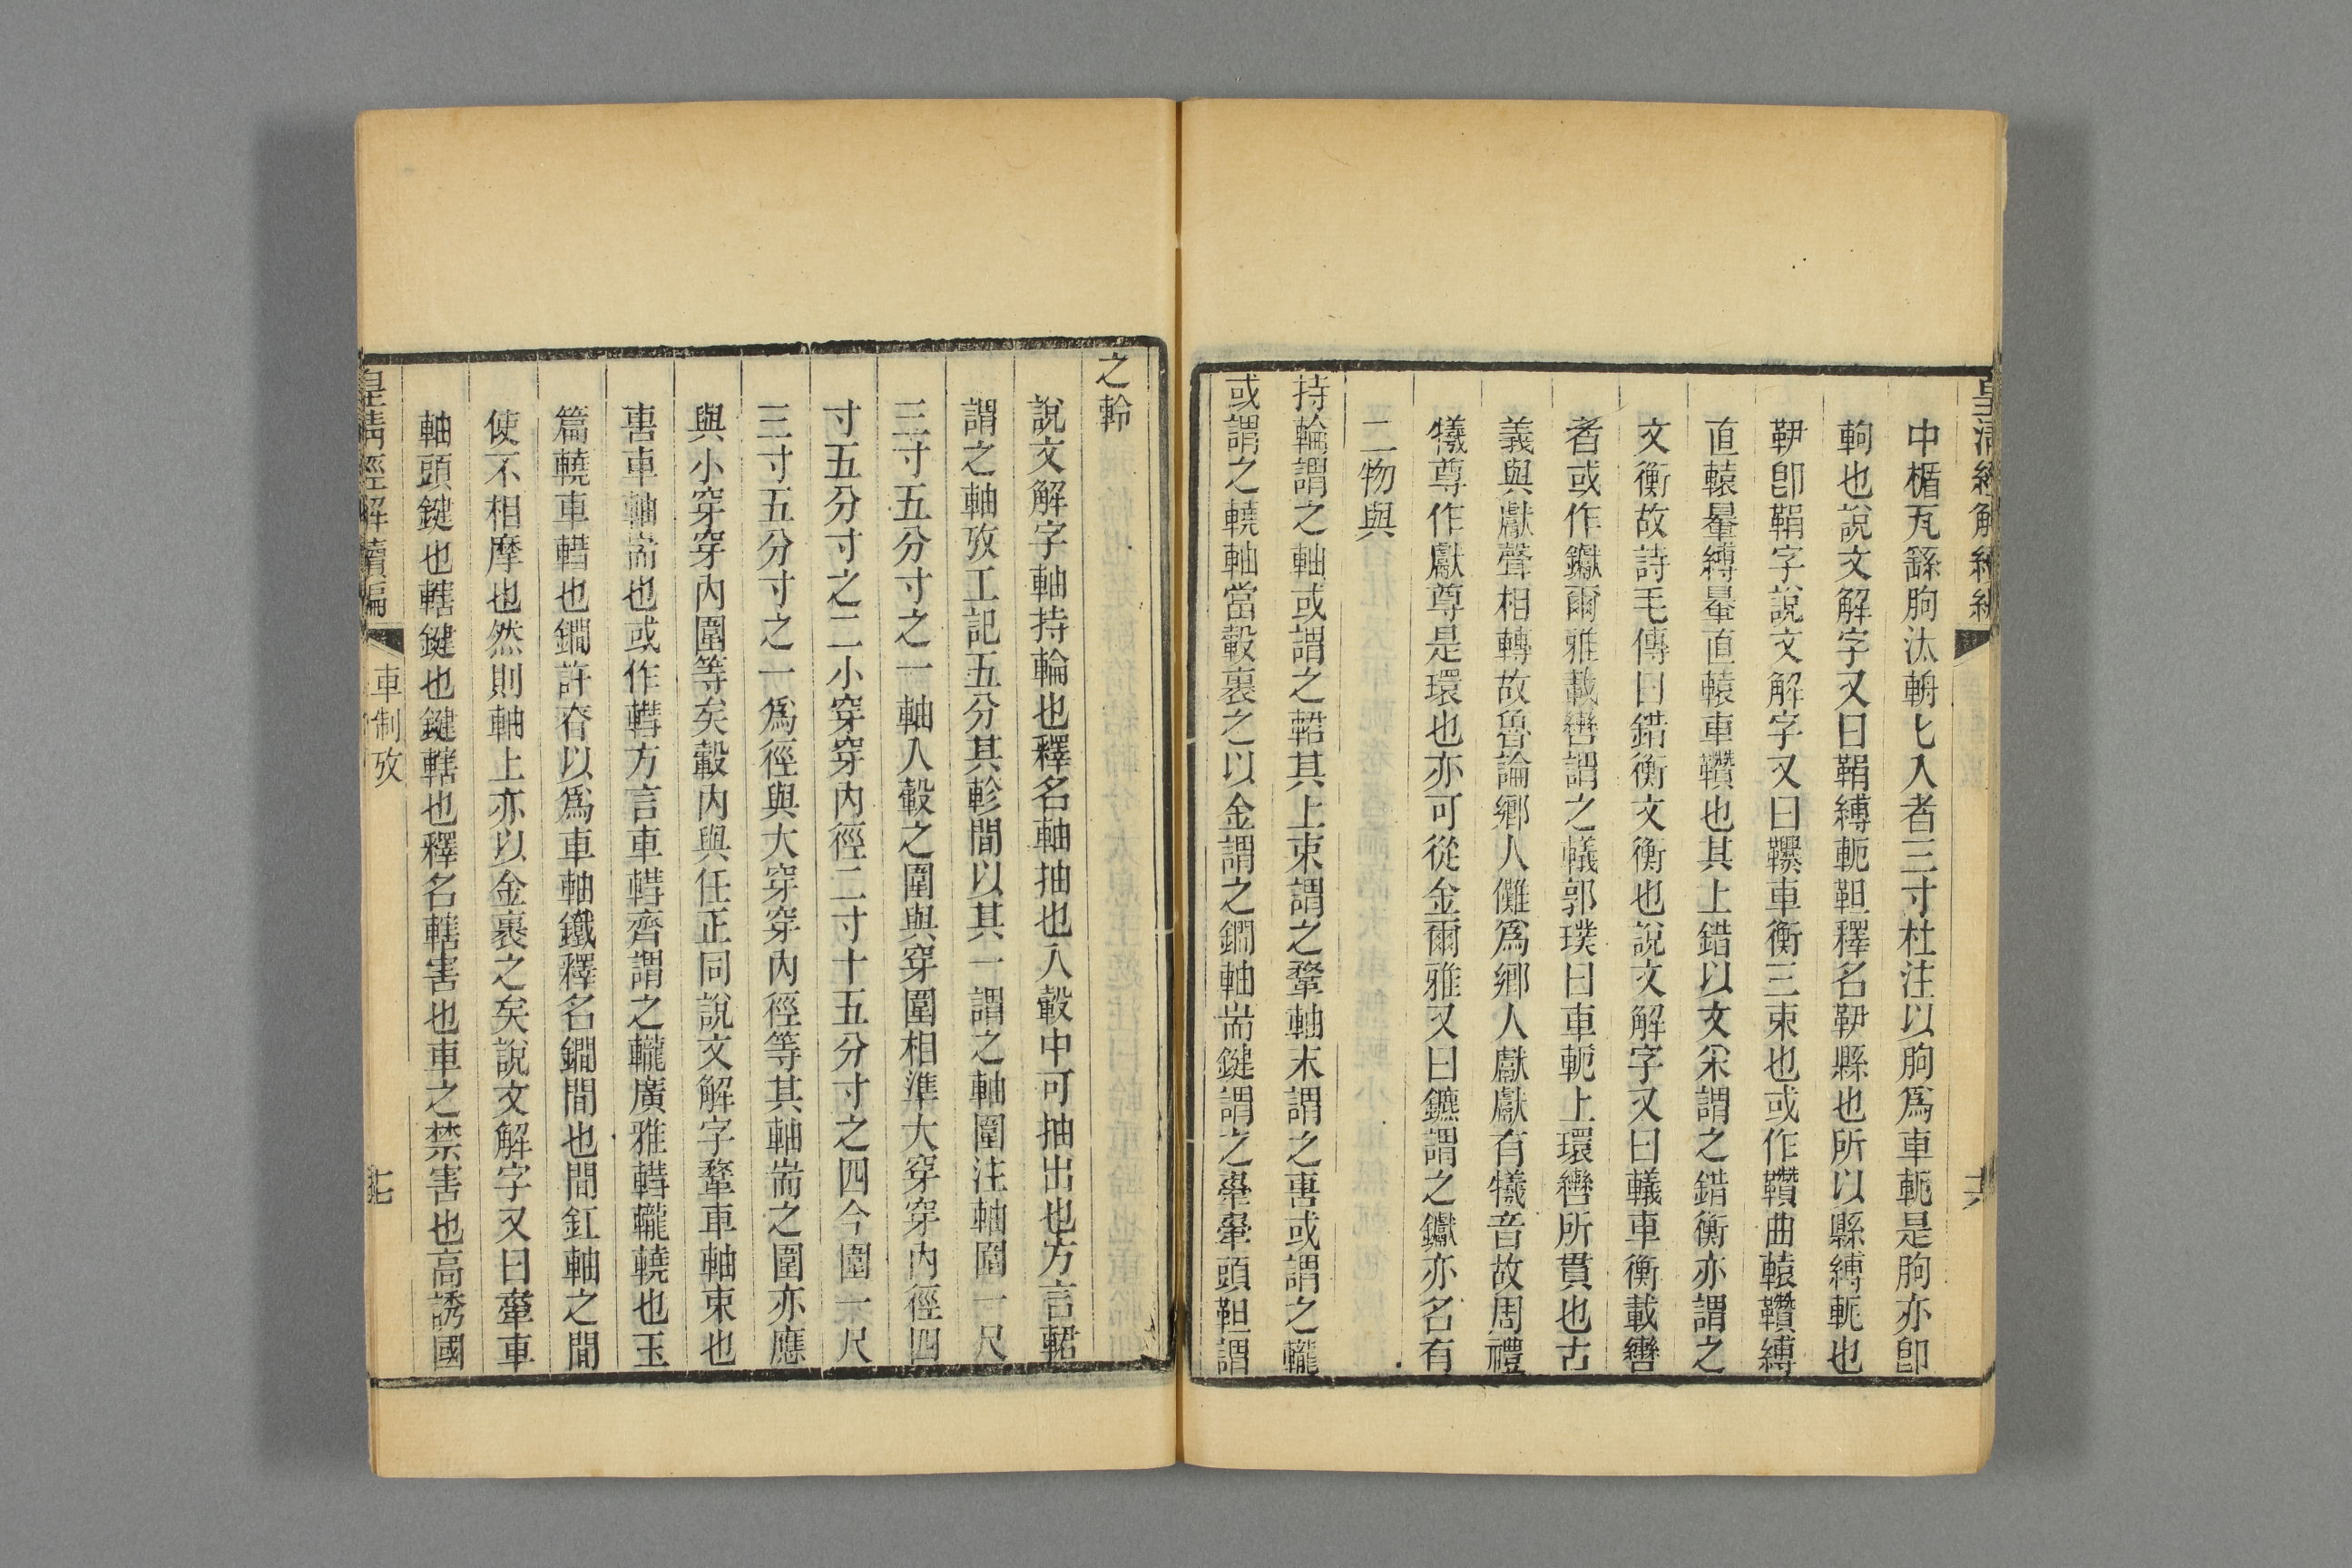 皇清經解續編
十六
中楯瓦繇朐汰輈匕入者三寸杜注以朐爲車軛是朐亦卽
軥也說文解字又曰鞙縛軛靼釋名鞙縣也所以縣縛軛也
卽鞙字說文解字又曰車衡三束也或作鑽曲轅鑽縛
直轅暈縛暈直轅車鑽也其上錯以文采謂之錯衡亦謂之
文衡故詩毛傳曰錯衡文衡也說文解字又曰轙車衡載轡
者或作钀爾雅載轡謂之轙郭璞曰車軛上環轡所貫也古
義與獻聲相轉故魯論鄉人儺爲鄉人獻獻有犧音故周禮
犧尊作獻尊是環也亦可從金爾雅又曰鑣謂之钀亦名有
二物與
持輪謂之軸或謂之輡其上束謂之鞪軸末謂之軎或謂之轣
或謂之轐軸當轂裏之以金謂之鐧軸耑鍵謂之舝舝頭靼謂
之軨
說文解字軸持輪也釋名軸抽也入轂中可抽出也方言輡
謂之軸攷工記五分其軫間以其一謂之軸圍注軸圍一尺
三寸五分寸之一軸入轂之圍與穿圍相準大穿穿內徑四
寸五分寸之二小穿穿內徑二寸十五分寸之四今圍一尺
三寸五分寸之一爲徑與大穿穿內徑等其軸耑之圍亦應
與小穿穿內圍等矣轂內與任正同說文解字鞪車軸束也
軎車軸耑也或作轊方言車轊齊謂之轣廣雅轊轣轐也玉
篇轐車轊也鐧許脊以爲車軸鐵釋名鐧間也間釭軸之間
使不相摩也然則軸上亦以金裹之矣說文解字又曰舝車
軸頭鍵也轄鍵也鍵轄也釋名轄害也車之禁害也高誘國
皇清經解續編
車制攷
十七